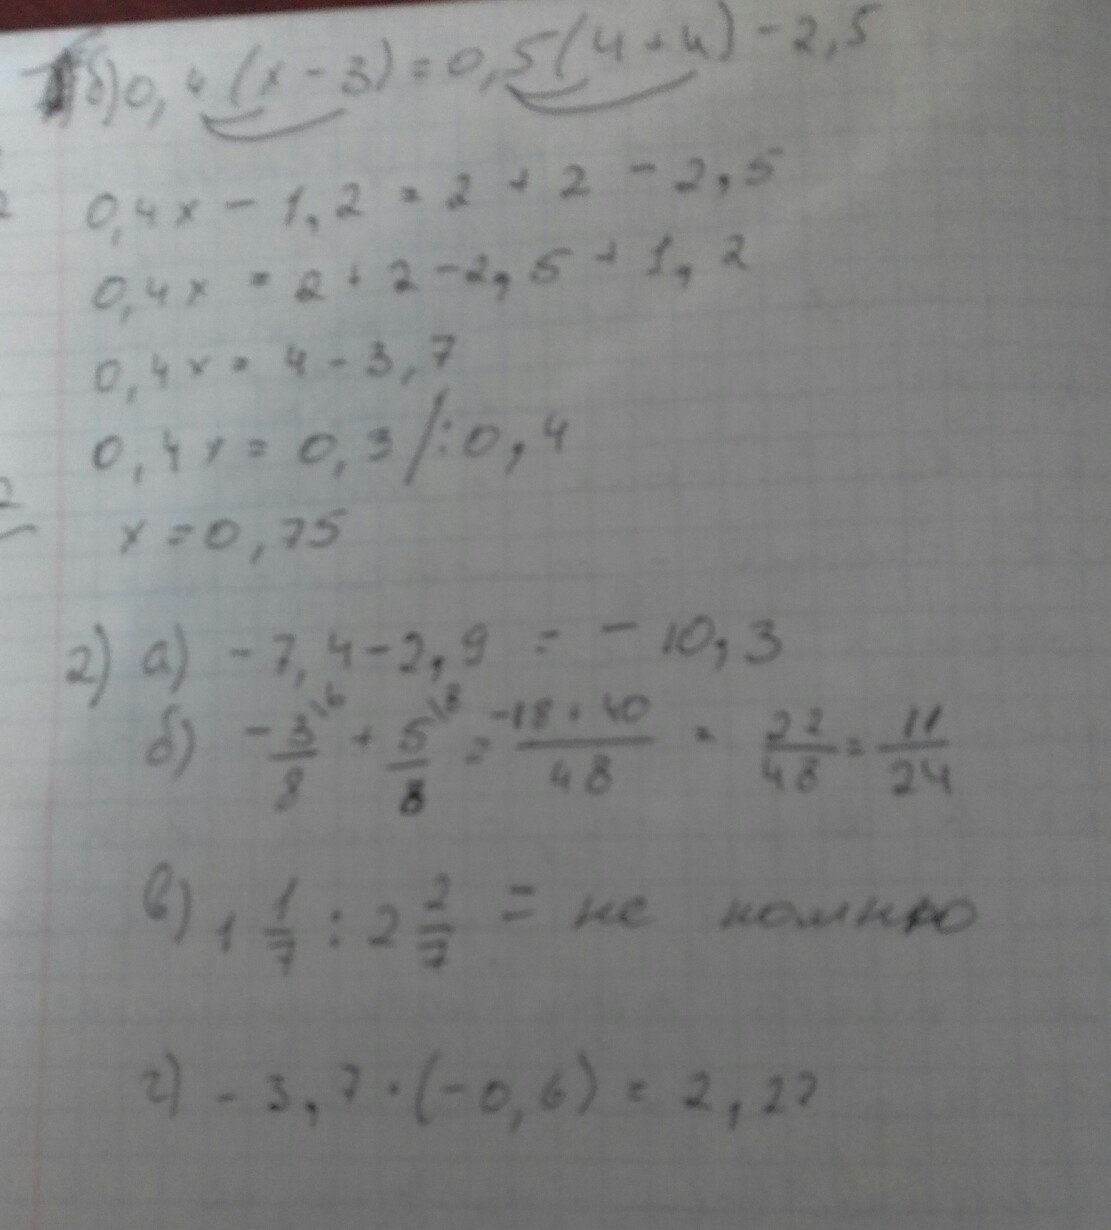 б) 0,4(x-3)=0,5(4+4)-2,5
0,4x-1,2=2+2-2,5
0,4x=2+2-2,5+1,2
0,4x=4-3,7
0,4x=0,3/:0,4
x=0,75
2) а) -7,4-2,9=-10,3
б) -3/8\6 + 5/8\8 = -18+40/48 = 22/48 = 11/24
в) 1 1/7 : 2 2/7 = не помню
г) -3,7·(-0,6)=2,22